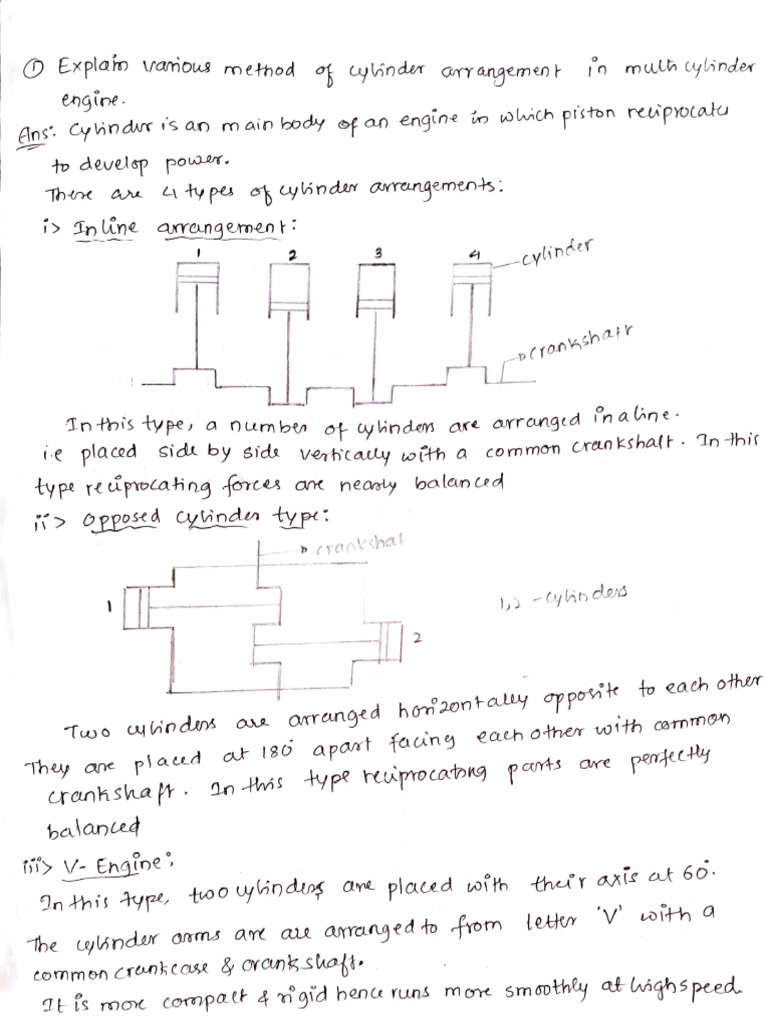 ① Explain various method of cylinder arrangement in multi cylinder
engine.
Ans: Cylinder is an main body of an engine in which piston reciprocate
to develop power.
There are 4 types of cylinder arrangements:
i> Inline arrangement:
1 2 3 4 cylinder
crankshaft
In this type, a number of cylinders are arranged in a line.
i.e placed side by side vertically with a common crankshaft. In this
type reciprocating forces are nearly balanced
ii> Opposed cylinder type:
crankshaf
1
1,2 - cylinders
2
Two cylinders are arranged horizontally opposite to each other
They are placed at 180° apart facing each other with common
crankshaft. In this type reciprocating parts are perfectly
balanced
iii> V- Engine;
In this type, two cylinders are placed with their axis at 60°.
The cylinder arms are are arranged to from letter 'V' with a
common crankcase & crankshaft.
It is more compact & rigid hence runs more smoothly at high speed.